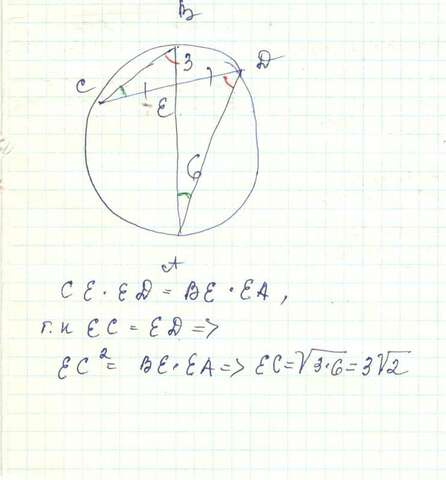 B
D
3
C
E
6
A
CE · ED = BE · EA,
т.к EC = ED =>
EC² = BE·EA => EC = √3·6 = 3√2